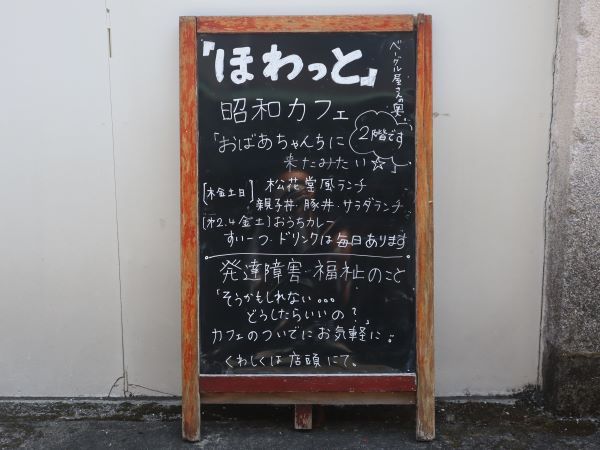 「ほわっと」
ベーグル屋さんの奥
昭和カフェ
2階です
「おばあちゃんちに
来たみたい☆」
[木金土日] 松花堂風ランチ
・親子丼・豚丼・サラダランチ
[第2.4金土]おうちカレー
すいーつ・ドリンクは毎日あります
発達障害・福祉のこと
「そうかもしれない。。。
どうしたらいいの?」
カフェのついでにお気軽に。
くわしくは店頭にて。